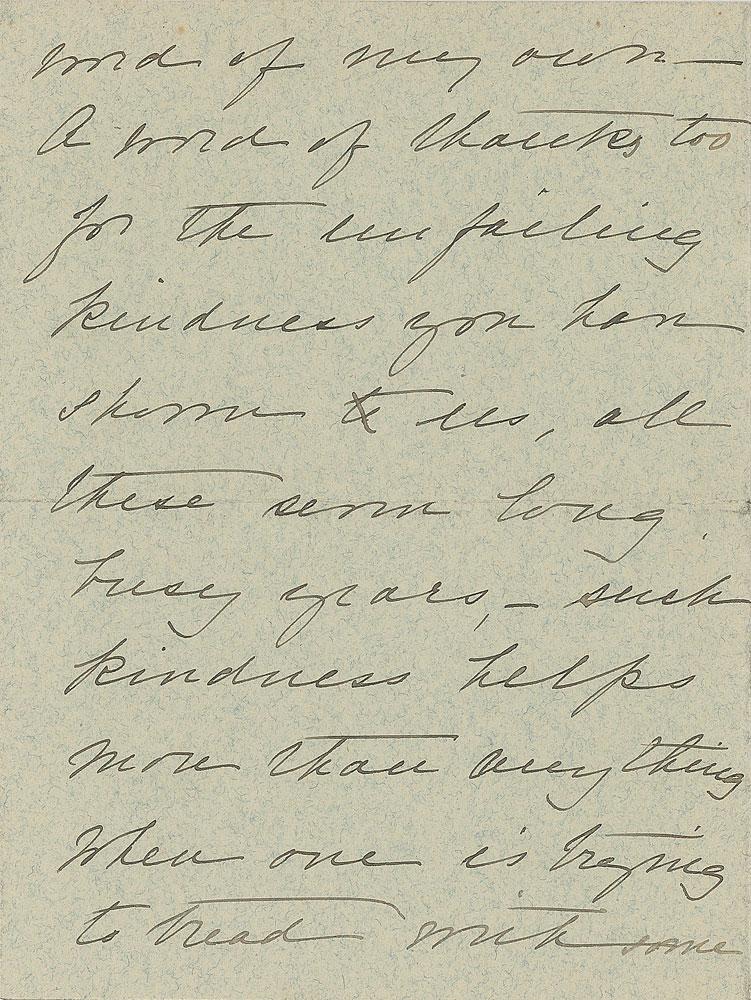 word of my own —
A word of thanks too
for the unfailing
kindness you have
shown to us, all
these seven long
busy years, — such
kindness helps
more than anything
when one is trying
to tread with some